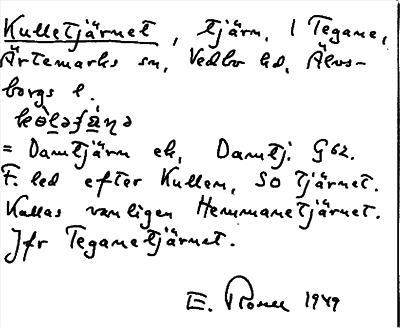 Kulletjärnet, tjärn, i Tegane,
Ärtemarks sn, Vedbo hd, Älvs-
borgs l.
= Damtjärn ek, Damtj. G 62.
F. led efter Kullen, SO tjärnet.
Kallas vanligen Hemmanetjärnet.
Jfr Teganetjärnet.
E. 1949